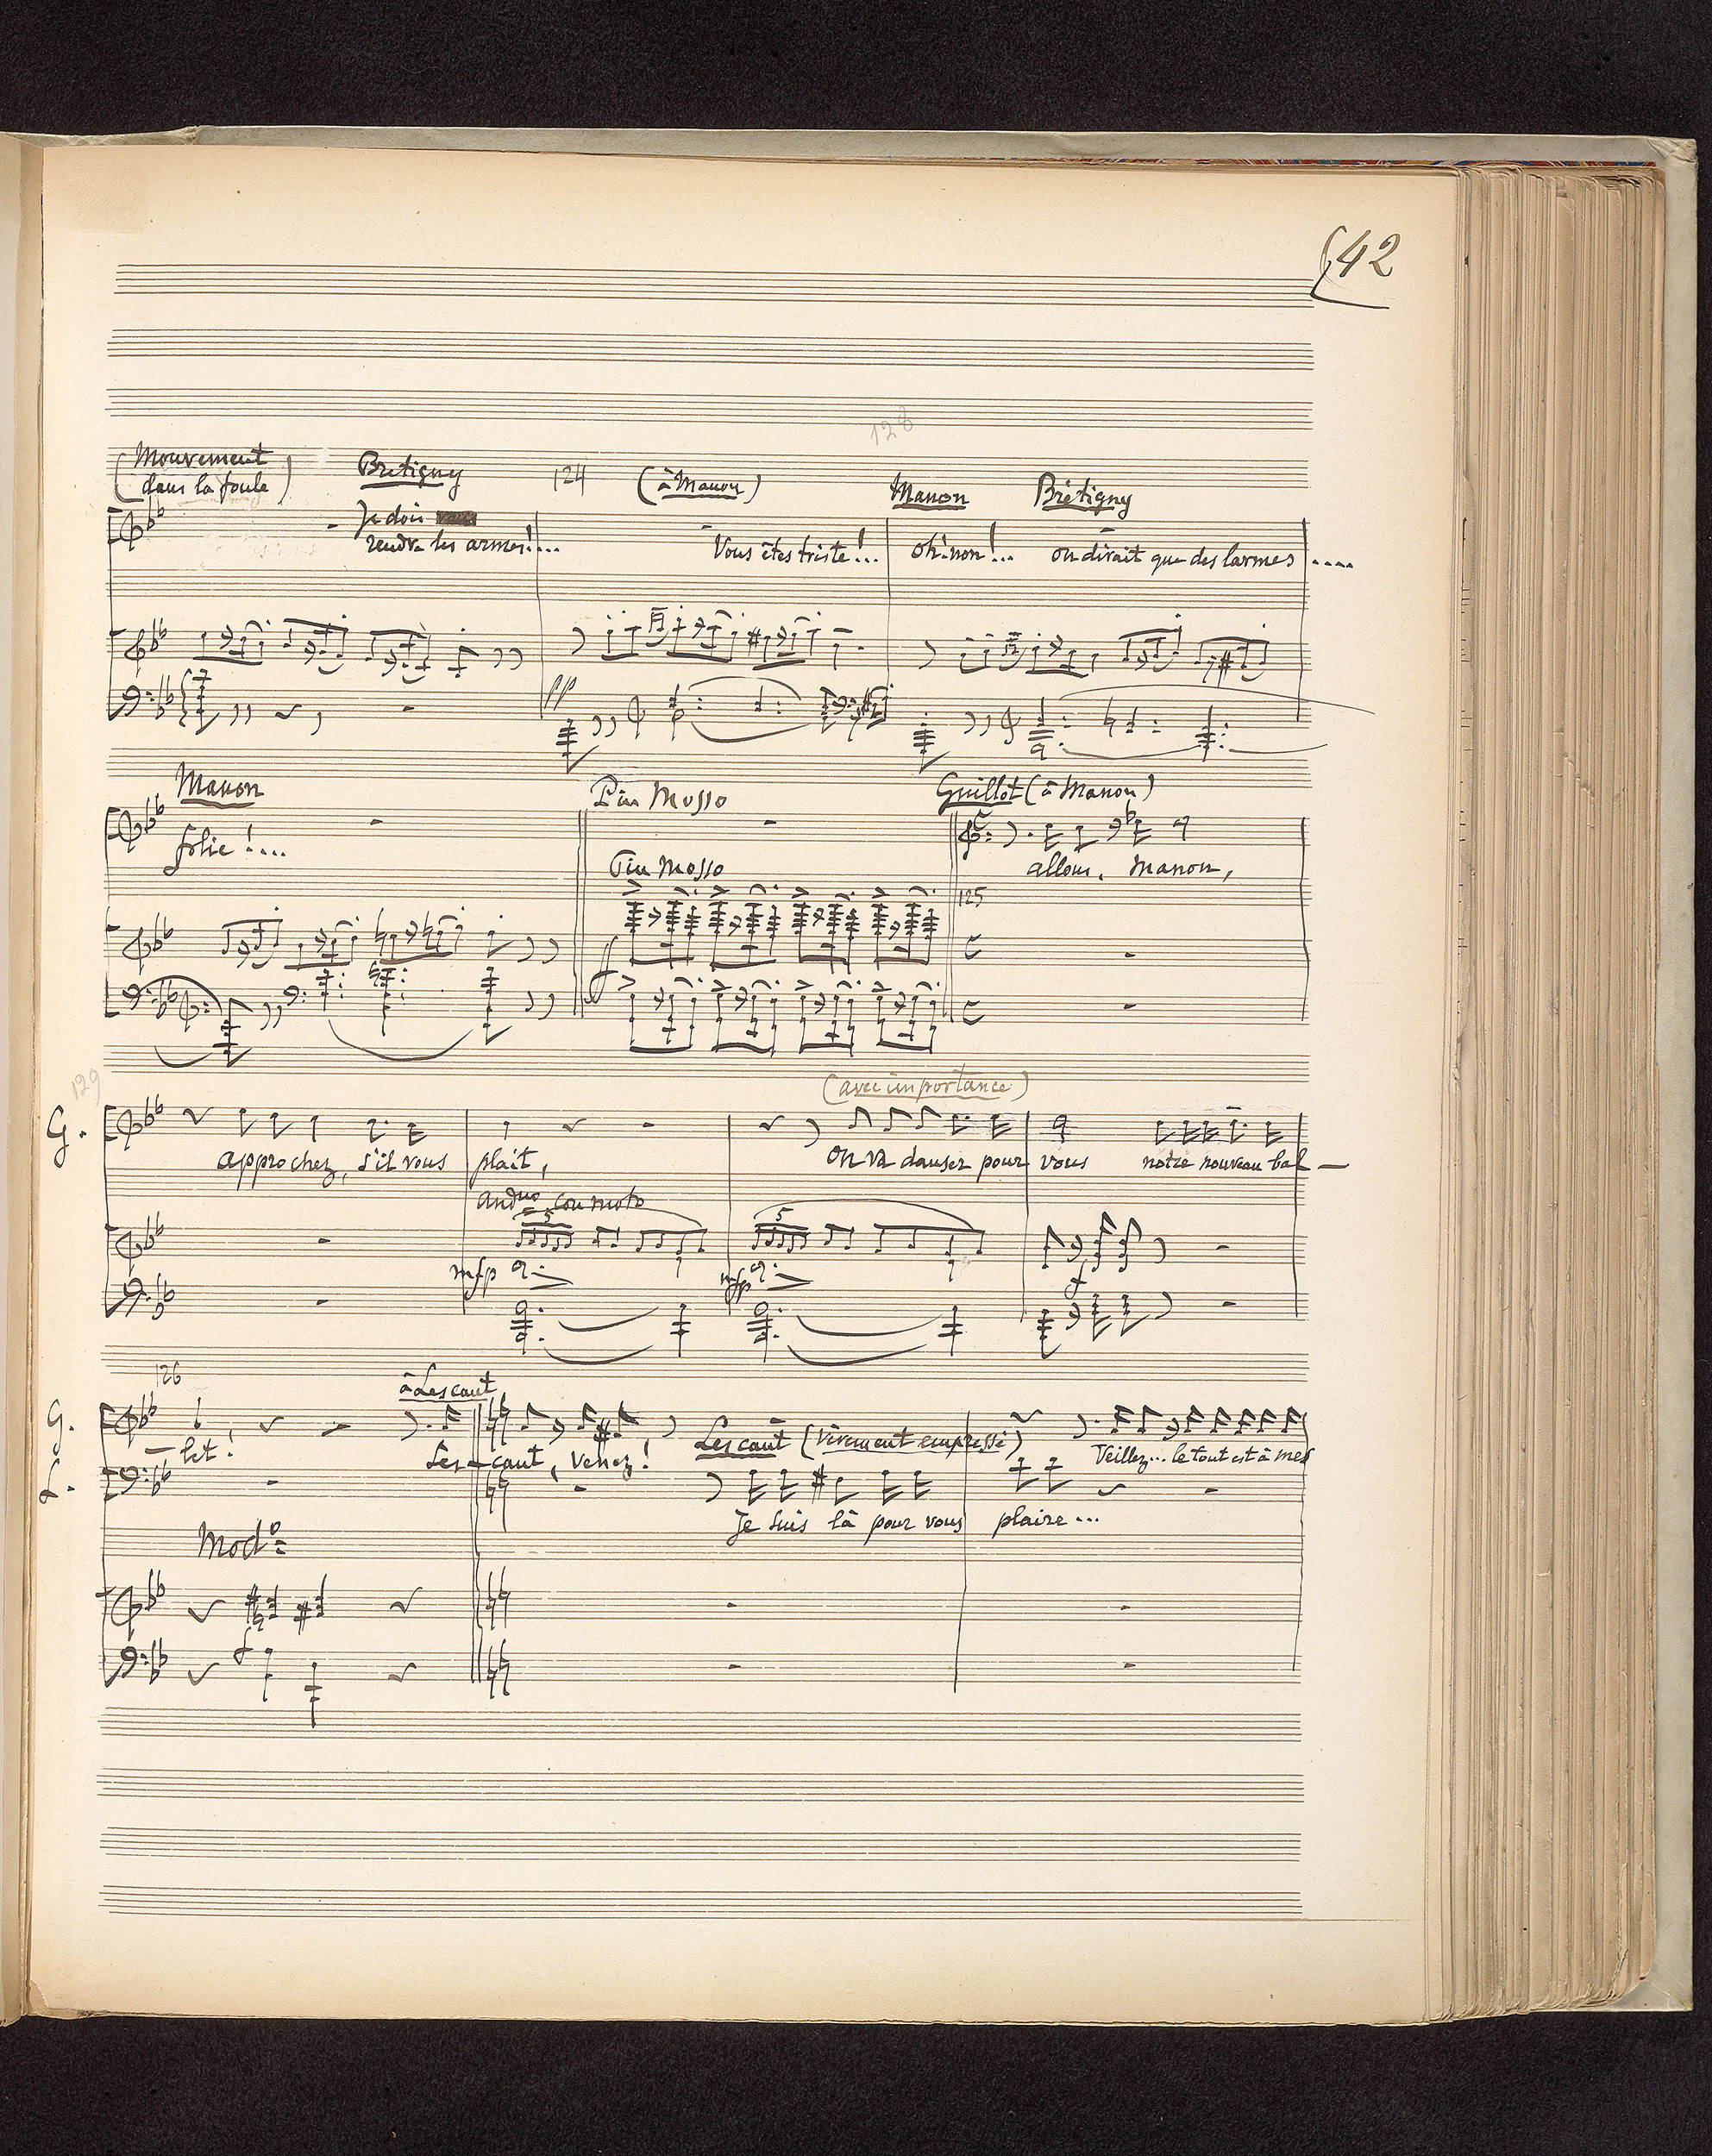 42
128
(Mouvement
dans la foule)
Bretigny
124
(à Manon)
Manon
Brétigny
Je dois
rendre les armes!...
Vous êtes triste!...
oh! non!...
on dirait que des larmes ....
pp
Manon
Piu Mosso
Guillot (à Manon)
folie!....
allons, Manon,
Piu Mosso
125
ff
129
(avec importance)
G.
approchez, s'il vous plait,
On va danser pour vous
notre nouveau bal —
andno con moto
5
5
mfp
mfp
f
126
à Lescaut
G.
— let!
Les — caut, venez!
Lescaut (vivement empressé)
Veillez... le tout est à mes
L.
Je suis là pour vous plaire...
Modo
f